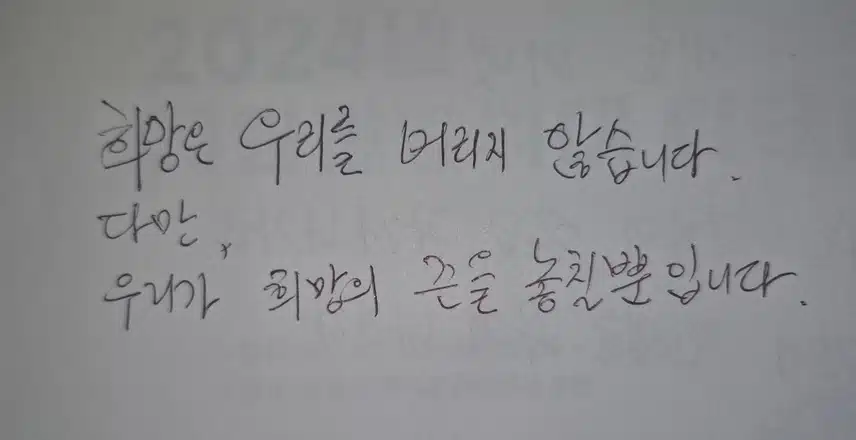 희망은 우리를 버리지 않습니다.
다만,
우리가 희망의 끈을 놓칠뿐입니다.